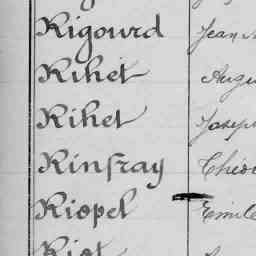 Rigourd Jean
Rihet Augu
Rihet Joseph
Rinfray Théo
Riopel Emile
Riot